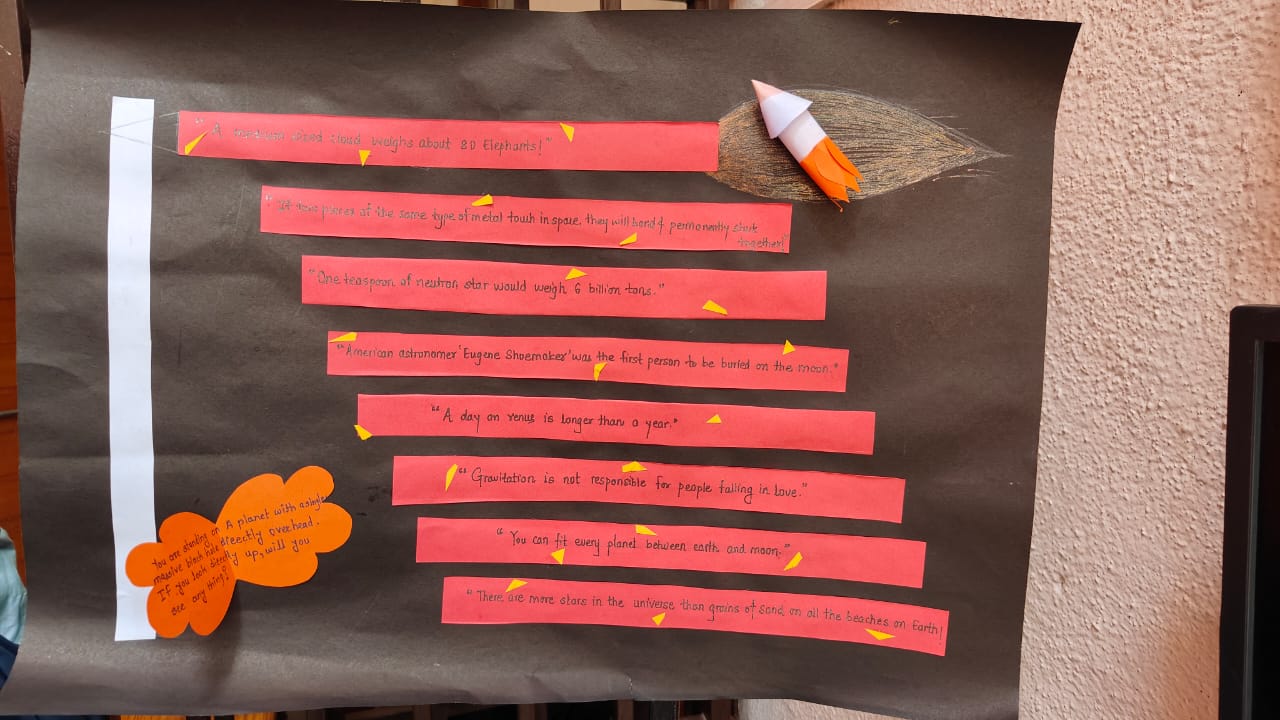 " A medium sized cloud weighs about 80 Elephants! "
" If two pieces of the same type of metal touch in space, they will bond & permanently stuck
together! "
" One teaspoon of neutron star would weigh 6 billion tons. "
" American astronomer 'Eugene Shoemaker' was the first person to be buried on the moon. "
" A day on venus is longer than a year. "
" Gravitation is not responsible for people falling in love. "
" You can fit every planet between earth and moon. "
" There are more stars in the universe than grains of sand on all the beaches on Earth!
You are standing on A planet with a single
massive black hole directly overhead.
If you look directly up, will you
see any thing?